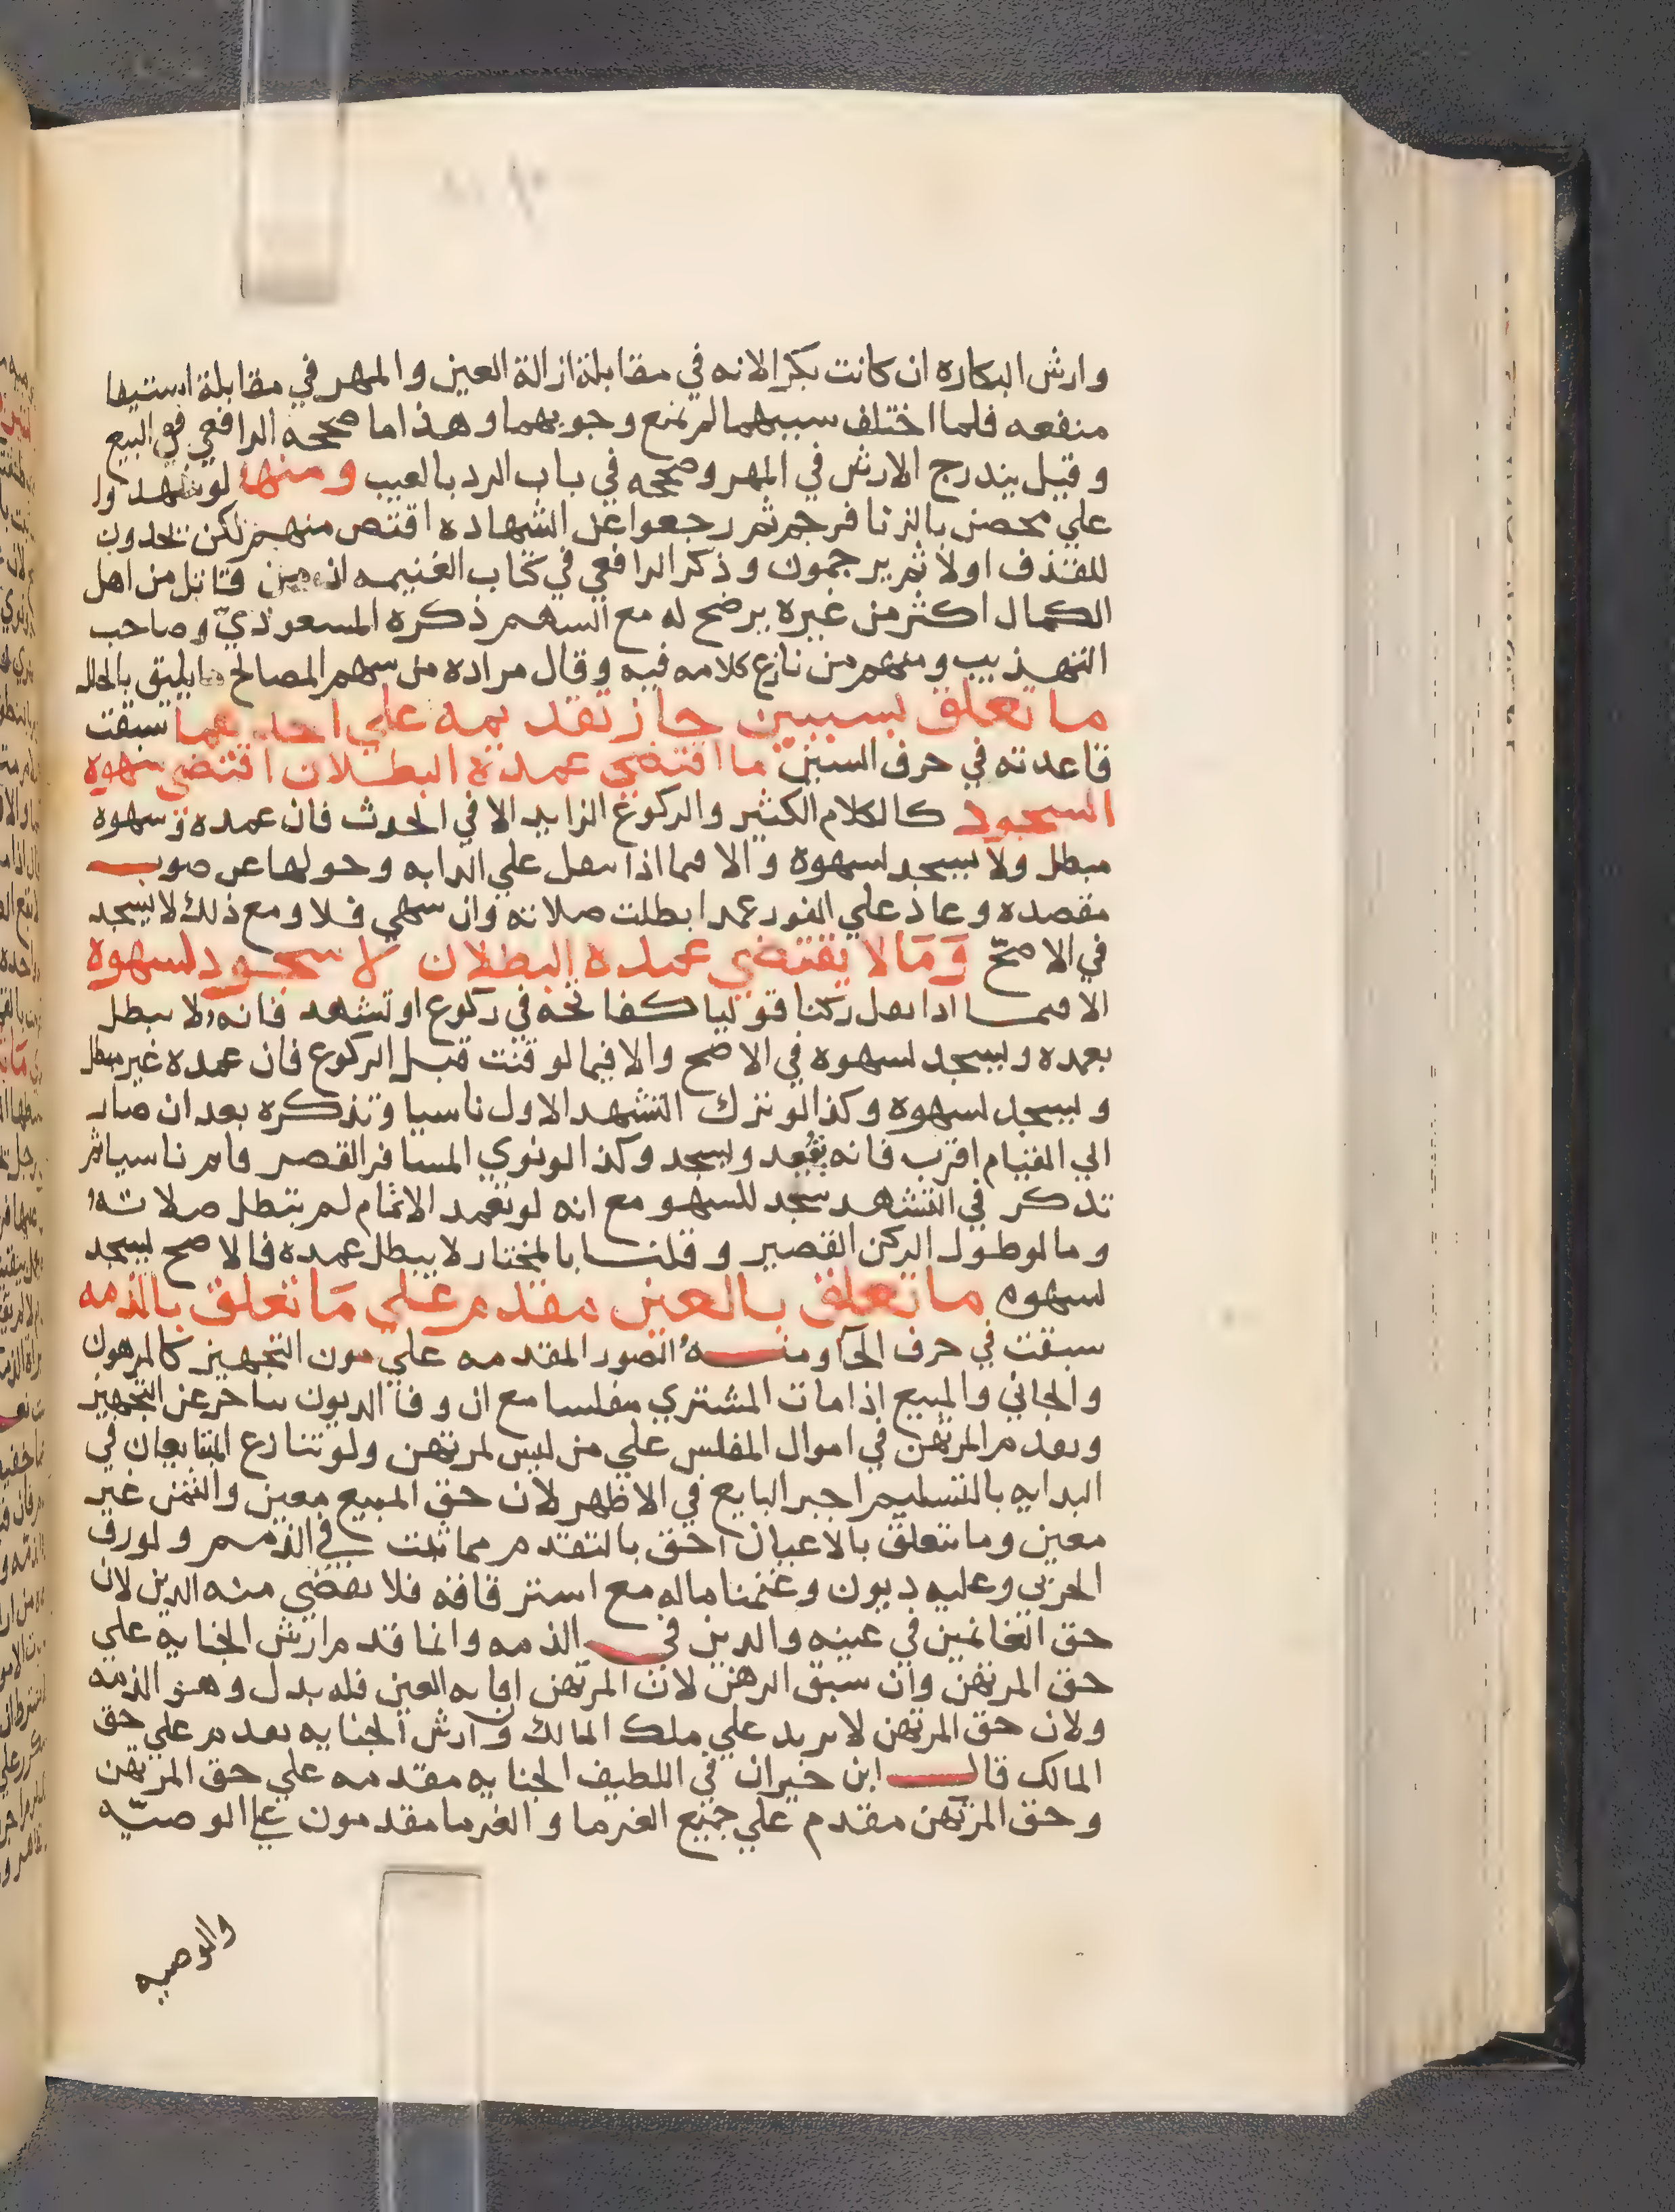 وارش البكاره ان كانت بكرا لانه في مقابلة ازالة العين والمهر في مقابلة استيفا
منفعه فلما اختلف سببهما لم يمنع وجوبهما وهذا ما صححه الرافعي في البيع
وقيل يندرج الارش في المهر وصححه في باب الرد بالعيب ومنها لو شهدوا
علي محصن بالزنا فرجم ثم رجعوا عن الشهاده اقتص منهم لكن يحدون
للقذف اولا ثم يرجمون وذكر الرافعي في كتاب الغنيمه ان من قاتل من اهل
الكمال اكثر من غيره يرضخ له مع السهم ذكره المسعودي وصاحب
التهذيب ومنهم من نازع كلامه فيه وقال مراده من سهم المصالح ما يليق بالحال
ما تعلق بسببين جاز تقديمه علي احدهما سبقت
قاعدته في حرف السين ما اقتضي عمده البطلان اقتضي سهوه
السجود كالكلام الكثير والركوع الزايد الا في الحدث فان عمده وسهوه
مبطل ولا يسجد لسهوه والا فيما اذا تنفل علي الدابه وحولها عن صوب
مقصده وعاد علي الفور عمدا بطلت صلاته وان سهي فلا ومع ذلك لا يسجد
في الاصح وما لا يقتضي عمده البطلان لا سجود لسهوه
الا فيما اذا نقل ركنا قوليا كفاتحه في ركوع او تشهد فانه لا يبطل
بعمده ويسجد لسهوه في الاصح والا فيما لو قنت قبل الركوع فان عمده غير مبطل
ويسجد لسهوه وكذا لو ترك التشهد الاول ناسيا وتذكره بعد ان صار
الي القيام اقرب فانه يقعد ويسجد وكذا لو نوي المسافر القصر وقام ناسيا ثم
تذكر في التشهد سجد للسهو مع انه لو تعمد الاتمام لم تبطل صلاته
وما لو طول الركن القصير وقلنا بالمختار لا يبطل عمده فالاصح يسجد
لسهوه ما تعلق بالعين مقدم علي ما تعلق بالذمه
سبقت في حرف الحا ومنه الصور المقدمه علي مون التجهيز كالمرهون
والجاني والمبيع اذا مات المشتري مفلسا مع ان وفا الديون يتاخر عن التجهيز
ويقدم المرتهن في اموال المفلس علي من ليس لمرتهن ولو تنازع المتبايعان في
البدايه بالتسليم اجبر البايع في الاظهر لان حق المبيع معين والثمن غير
معين وما يتعلق بالاعيان احق بالتقدم مما ثبت في الذمم ولو رق
الحربي وعليه ديون وغنمنا ماله مع استرقاقه فلا يقضي منه الدين لان
حق الغانمين في عينه والدين في الذمه وانما قدم ارش الجنايه علي
حق المرتهن وان سبق الرهن لان المرتهن فاته العين فله بدل وهو الذمه
ولان حق المرتهن لا يزيد علي ملك المالك وارش الجنايه يقدم علي حق
المالك قال ابن خيران في اللطيف الجنايه مقدمه علي حق المرتهن
وحق المرتهن مقدم علي جميع الغرما والغرما مقدمون علي الوصيه
والوصيه